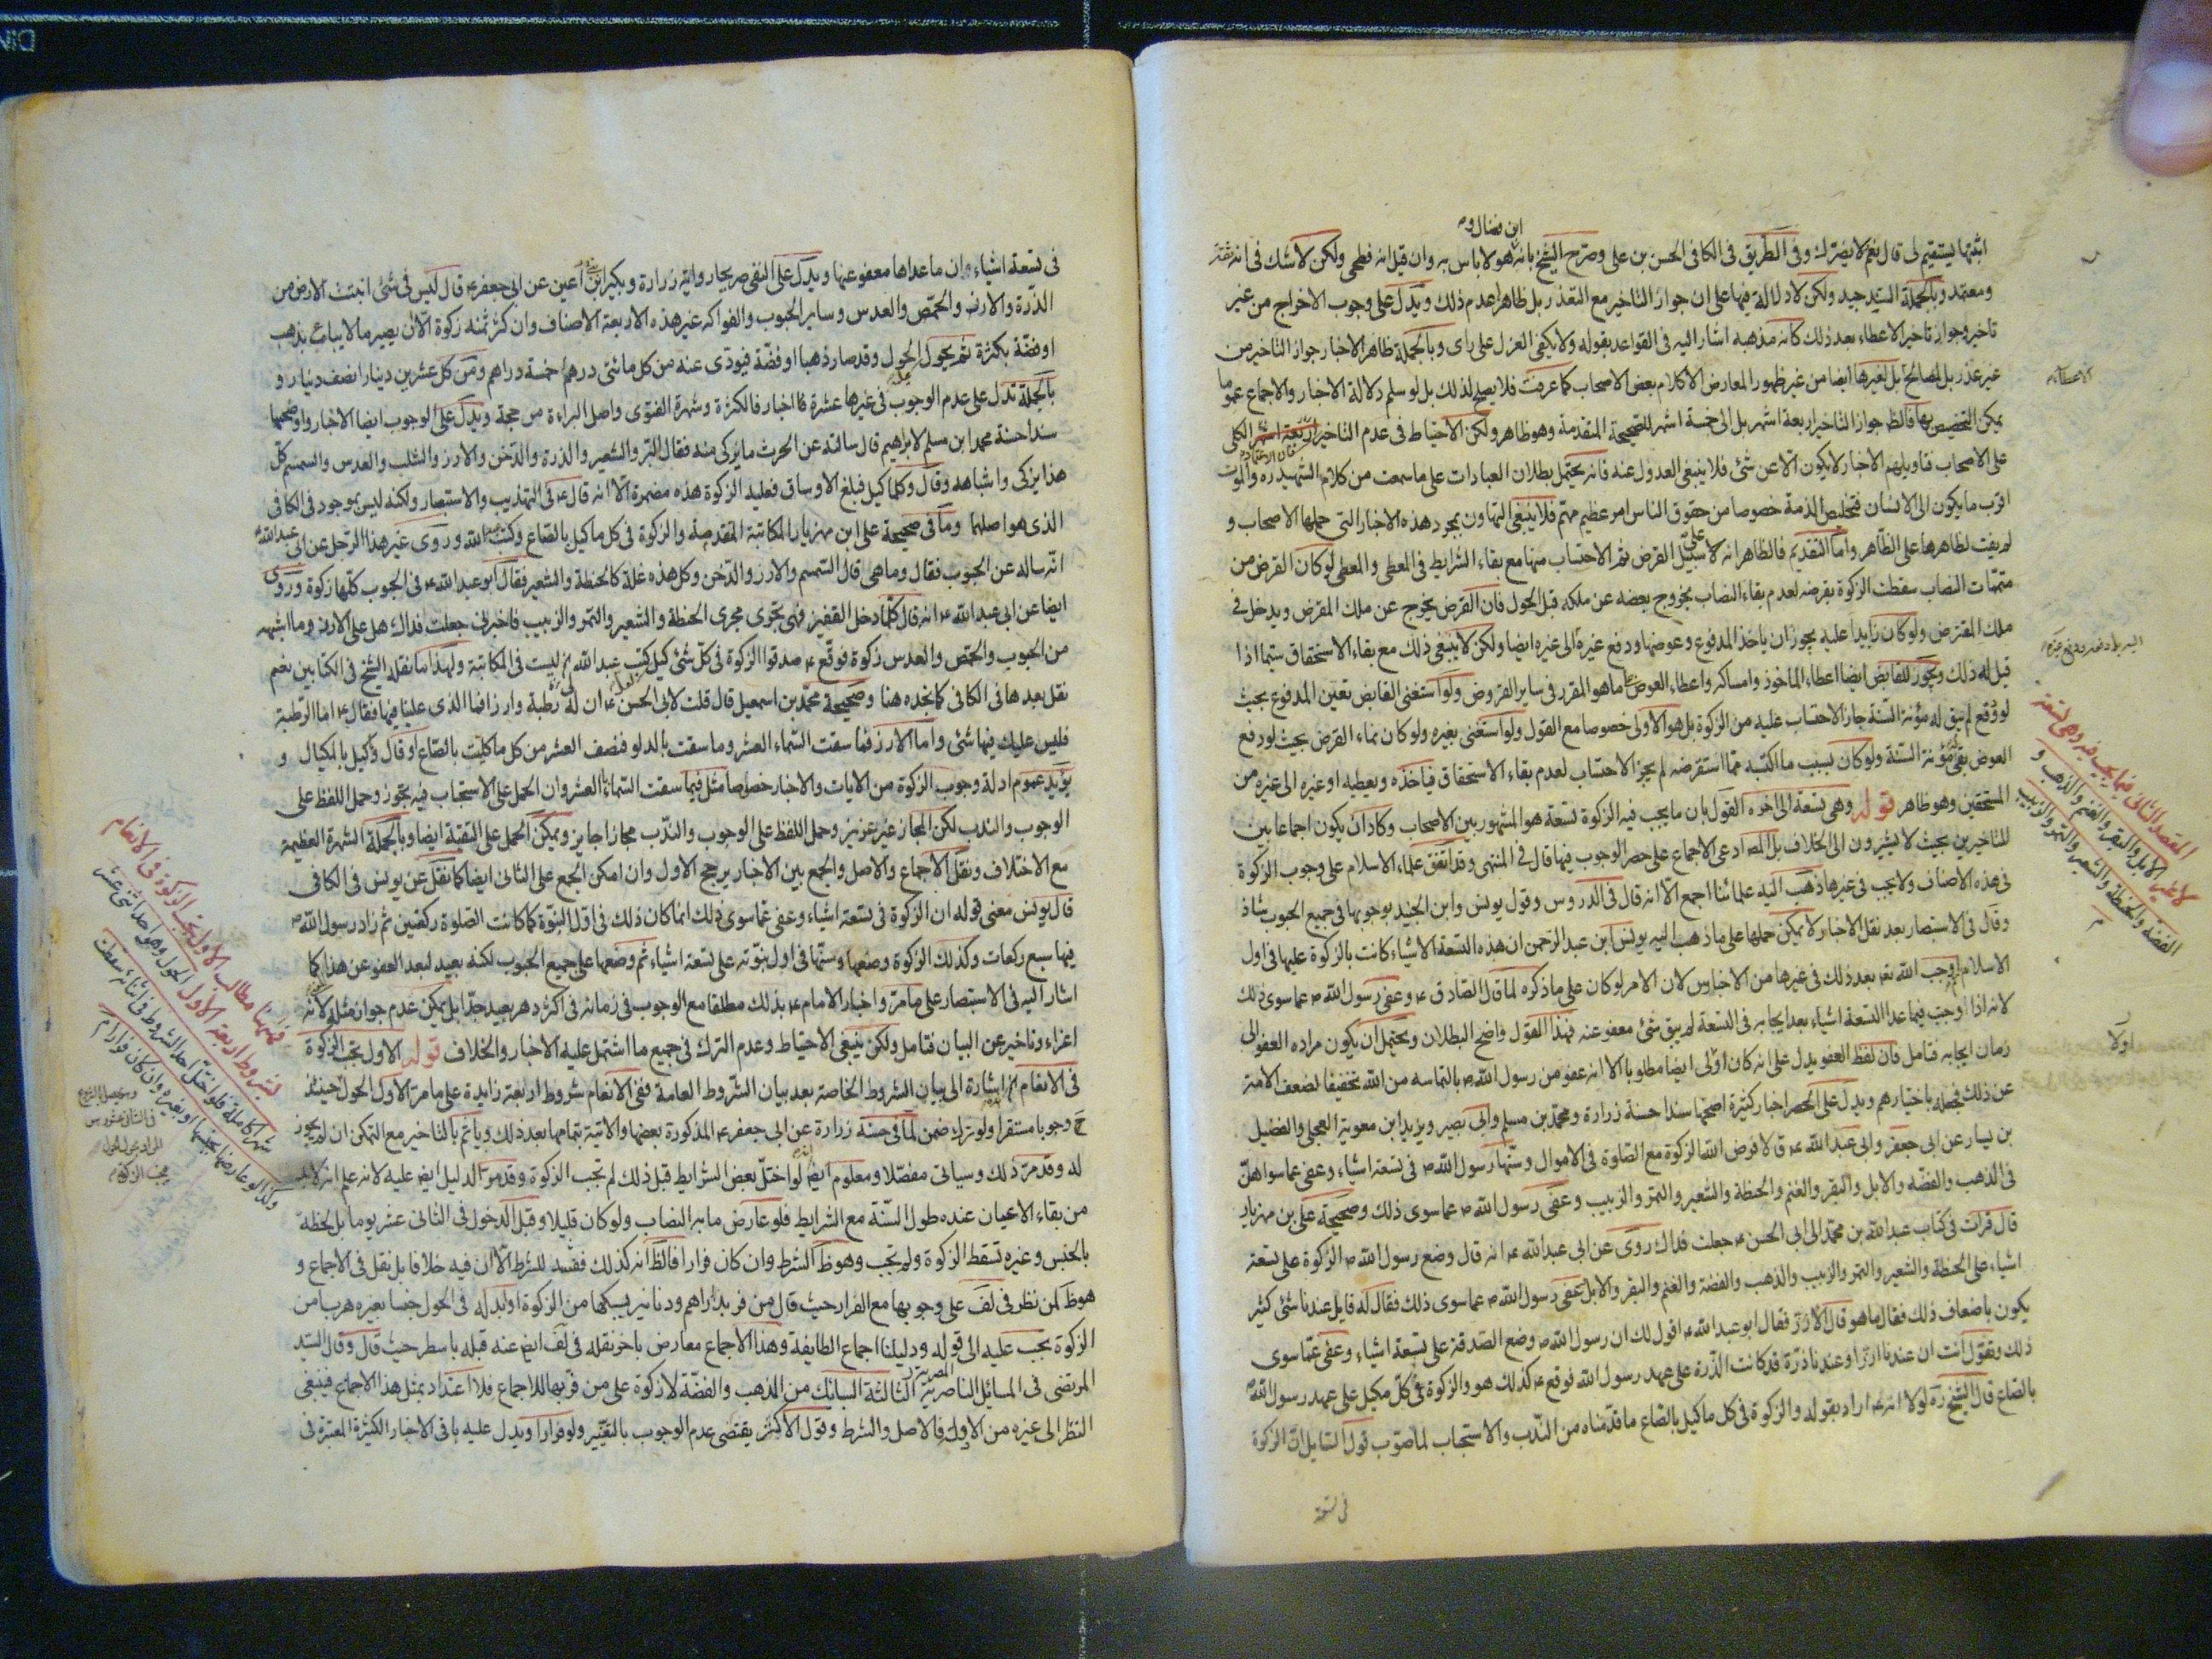 ابن فضال و
اثبتها يستقيم لى قال نعم لا يضرك وفى الطريق فى الكافى الحسن بن على وصرح الشيخ بانه هو لا باس به وان قيل انه فطحى ولكن لا شك فى انه ثقة
ومعتمد وبالجملة السند جيد ولكن لا دلالة فيها على ان جواز التاخير مع التعذر بل ظاهرا عدم ذلك ويدل على وجوب الاخراج من غير
تاخير وجواز تاخير الاعطاء بعد ذلك كانه مذهبه اشار اليه فى القواعد بقوله ولا يكفى العزل على راى وبالجملة ظاهر الاخبار جواز التاخير من
غير عذر بل لصالح بل لغيرها ايضا من غير ظهور المعارض الا كلام بعض الاصحاب كما عرفت فلا يصلح لذلك بل لو سلم دلالة الاخبار والاجماع عموما
يمكن التخصيص بها فالظ جواز التاخير اربعة اشهر بل الى خمسة اشهر للصحيحة المتقدمة وهو ظاهر ولكن الاحتياط فى عدم التاخير
على الاصحاب فتاويلهم الاخبار لا يكون الا عن شئ فلا ينبغى العدول عنه فانه يحتمل بطلان العبادات على ما سمعت من كلام الشهيد ره والموت
اقرب ما يكون الى الانسان فتخليص الذمة خصوصا من حقوق الناس امر عظيم مهتم فلا ينبغى التهاون بمجرد هذه الاخبار التى حملها الاصحاب و
لم يفت لظاهرها على الظاهر واما التقديم فالظاهر انه لا سبيل على القرض ثم الاحتساب منها مع بقاء الشرايط فى المعطى والمعطى لو كان القرض من
متممات النصاب سقطت الزكوة بقرضه لعدم بقاء النصاب بخروج بعضه عن ملكه قبل الحول فان القرض يخرج عن ملك المقرض ويدخل فى
ملك المقترض ولو كان زايدا عليه يجوز ان ياخذ المدفوع وعوضها ودفع غيره الى غيره ايضا ولكن لا ينبغى ذلك مع بقاء الاستحقاق سيما اذا
قبل له ذلك ويجوز للقابض ايضا اعطاء الماخوذ وامساكه واعطاء العوض كما هو المقرر فى ساير القروض ولو استغنى القابض بعين المدفوع بحيث
لو دفع لم يبق له مؤنة السنة جاز الاحتساب عليه من الزكوة بل هو الاولى خصوصا مع القول ولو استغنى بغيره ولو كان نماء القرض بحيث لو دفع
العوض بقى مؤنة السنة ولو كان بسبب ما اكتسبه مما استقرضه لم يجز الاحتساب لعدم بقاء الاستحقاق فياخذه ويعطيه او غيره الى غيره من
المستحقين وهو ظاهر قوله وهى تسعة الى اخره القول بان ما يجب فيه الزكوة تسعة هو المشهور بين الاصحاب وكاد ان يكون اجماعا بين
المتاخرين بحيث لا يشيرون الى الخلاف بل المصادعى الاجماع على حصر الوجوب فيها قال فى المنتهى وقد اتفق علماء الاسلام على وجوب الزكوة
فى هذه الاصناف ولا يجب فى غيرها ذهب اليه علمائنا اجمع الا انه قال فى الدروس وقول يونس وابن الجنيد بوجوبها فى جميع الحبوب شاذ
وقال فى الاستبصار بعد نقل الاخبار لا يمكن حملها على ما ذهب اليه يونس ابن عبد الرحمن ان هذه التسعة الاشياء كانت بالزكوة عليها فى اول
الاسلام اوجب الله تع بعد ذلك فى غيرها من الاجناس لان الامر لو كان على ما ذكره لما قال الصادق ع وعفى رسول الله ص عما سوى ذلك
لانه اذا اوجب فيما عدا التسعة اشياء بعد ايجابه فى التسعة لم يبق شئ معفو عنه فهذا القول واضح البطلان ويحتمل ان يكون مراده العفو الى
زمان ايجابه فتامل فان لفظ العفو يدل على انه كان اولى ايضا مطلوبا الا انه عفو من رسول الله ص بالتماسه من الله تخفيفا لضعف الامة
عن ذلك فجعله باختيارهم ويدل على الحصر اخبار كثيرة اصحها سندا حسنة زرارة ومحمد بن مسلم وابى بصير ويزيد ابن معوية العجلى والفضيل
بن يسار عن ابى جعفر وابى عبد الله ع قالا فرض الله الزكوة مع الصلوة فى الاموال وسنها رسول الله ص فى تسعة اشياء وعفى عما سواهن
فى الذهب والفضة والابل والبقر والغنم والحنطة والشعير والتمر والزبيب وعفى رسول الله ص عما سوى ذلك وصحيحة على بن مهزيار
قال قرات فى كتاب عبد الله بن محمد الى ابى الحسن ع جعلت فداك روى عن ابى عبد الله ع انه قال وضع رسول الله ص الزكوة على تسعة
اشياء على الحنطة والشعير والتمر والزبيب والذهب والفضة والغنم والبقر والابل عفى رسول الله ص عما سوى ذلك فقال له قايل عندنا شئ كثير
يكون باضعاف ذلك فقال ما هو قال الارز فقال ابو عبد الله ع اقول لك ان رسول الله ص وضع الصدقة على تسعة اشياء وعفى عما سوى
ذلك وتقول انت ان عندنا ارزا وعندنا ذرة قد كانت الذرة على عهد رسول الله فوقع ع كذلك هو والزكوة فى كل مكيل على عهد رسول الله ص
بالصاع قال الشيخ ره لولا انه ع اراد بقوله والزكوة فى كل ما كيل بالصاع ما قدمناه من الندب والاستحباب لما صوب قول السايل ان الزكوة
فى تسعة
المقصد الثانى فيما يجب فيه وهى تسعة
لا غير الابل والبقر والغنم والذهب و
الفضة والحنطة والشعير والتمر والزبيب
اولا
فى تسعة اشياء وان ما عداها معفو عنها ويدل على النفى صريحا رواية زرارة وبكير ابن اعين عن ابى جعفر ع قال ليس فى شئ انبتت الارض من
الذرة والارز والحمص والعدس وساير الحبوب والفواكه غير هذه الاربعة الاصناف وان كثر ثمنه زكوة الا ان يصير مالا يباع بذهب
او فضة يكنزه ثم يحول الحول وقد صار ذهبا او فضة فيودى عنه من كل مائتى درهم خمسة دراهم ومن كل عشرين دينارا نصف دينار و
بالجملة تدل على عدم الوجوب فى غيرها عشرة اخبار فالكثرة وشهرة الفتوى واصل البراءة من حجة ويدل على الوجوب ايضا الاخبار واوضحها
سندا حسنة محمد ابن مسلم لابراهيم قال سالته عن الحرث ما يزكى منه فقال البر والشعير والذرة والدخن والارز والسلت والعدس والسمسم كل
هذا يزكى واشباهه وقال وكلما كيل فبلغ الاوساق فعليه الزكوة هذه مضمرة الا انه قال ع فى التهذيب والاستبصار ولكنه ليس بموجود فى الكافى
الذى هو اصلهما وما فى صحيحة على ابن مهزيار المكاتبة المتقدمة والزكوة فى كل ما كيل بالصاع وكتب عبد الله وروى غير هذا الرجل عن ابى عبد الله ع
انه ساله عن الحبوب فقال وما هى قال السمسم والارز والدخن وكل هذه غلة كالحنطة والشعير فقال ابو عبد الله ع فى الحبوب كلها زكوة وروى
ايضا عن ابى عبد الله ع انه قال كلما دخل القفيز فهى تجرى مجرى الحنطة والشعير والتمر والزبيب فاخبرنى جعلت فداك هل على الارز وما اشبهه
من الحبوب والحمص والعدس زكوة فوقع ع صدقوا الزكوة فى كل شئ كيل كتب عبد الله ليست فى المكاتبة ولهذا ما نقله الشيخ فى الكتابين نعم
نقل بعدها فى الكافى كما نجده هنا وصحيحة محمد بن اسمعيل قال قلت لابى الحسن ع ان لنا رطبة وارزا فما الذى علينا فيها فقال ع اما الرطبة
فليس عليك فيها شئ واما الارز فما سقت السماء العشر وما سقت بالدلو فنصف العشر من كل ما كلت بالصاع او قال وكيل بالمكيال و
يؤيد عموم ادلة وجوب الزكوة من الايات والاخبار خصوصا مثل فيما سقت السماء العشر وان الحمل على الاستحباب فيه تجوز وحمل اللفظ على
الوجوب والندب لكن المجاز غير عزيز وحمل اللفظ على الوجوب والندب مجازا جايز ويمكن الحمل على التقية ايضا وبالجملة الشهرة العظيمة
مع الاختلاف ونقل الاجماع والاصل والجمع بين الاخبار يرجح الاول وان امكن الجمع على الثانى ايضا كما نقل عن يونس فى الكافى
قال يونس معنى قوله ان الزكوة فى تسعة اشياء وعفى عما سوى ذلك انما كان ذلك فى اول النبوة كما كانت الصلوة ركعتين ثم زاد رسول الله ص
فيها سبع ركعات وكذلك الزكوة وضعها وسنها فى اول نبوته على تسعة اشياء ثم وضعها على جميع الحبوب لكنه بعيد لبعد العفو عن هذا كما
اشار اليه فى الاستبصار على ما مر واخبار الامام ع بذلك مطلقا مع الوجوب فى زمانه فى اكثر دهر بعيد جدا بل يمكن عدم جواز مثله لانه
اغراء وتاخير عن البيان فتامل ولكن ينبغى الاحتياط وعدم الترك فى جميع ما اشتمل عليه الاخبار والخلاف قوله الاول تجب الزكوة
فى الانعام اشارة الى بيان الشروط الخاصة بعد بيان الشروط العامة ففى الانعام شروط اربعة زايدة على ما مر الاول الحول حينئذ
وجوبا مستقرا ولو تزلزلا ضمن لما فى حسنة زرارة عن ابى جعفر ع المذكورة بعضها والاتية بتمامها بعد ذلك وياثم بالتاخير مع التمكن ان لم يجوز
له وقد مر ذلك وسياتى مفصلا ومعلوم ايض لو اختل بعض الشرايط قبل ذلك لم تجب الزكوة وقد مر الدليل ايض عليه لانه علم انه لا بد
من بقاء الاعيان عنده طول السنة مع الشرايط فلو عارض ما به النصاب ولو كان قليلا وقبل الدخول فى الثانى عشر يوما بل لحظة
بالجنس وغيره تسقط الزكوة ولم تجب وهو ظ الشرط وان كان فرارا فالظ انه كذلك فقيد للشرط الا ان فيه خلافا بل نقل فى الاجماع و
هو ظ لمن نظر فى لف على وجوبها مع الفرار حيث قال من فر بدراهم ودنانير يسبكها من الزكوة او ابدله فى الحول جنسا بغيره هربا من
الزكوة يجب عليه الى قوله ودليلنا اجماع الطايفة وهذا الاجماع معارض باخر نقله فى لف ايض عنه قبله باسطر حيث قال وقال السيد
المرتضى فى المسايل الناصرية المصرية الثالثة السبائك من الذهب والفضة لا زكوة على من فر بها للاجماع فلا اعتداد بمثل هذا الاجماع فينبغى
النظر الى غيره من الادلة فالاصل والشرط وقول الاكثر يقتضى عدم الوجوب بالتغيير ولو فرارا ويدل عليه باقى الاخبار الكثيرة المعتبرة فى
فههنا مطالب الاول تجب الزكوة فى الانعام
بشروط اربعة الاول الحول وهو احد اثنى عشر
شهرا كاملة فلو اختل احد الشروط فى اثنائه سقطت
وكذا لو عارضها بجنسها او بغيره وان كان فرارا م